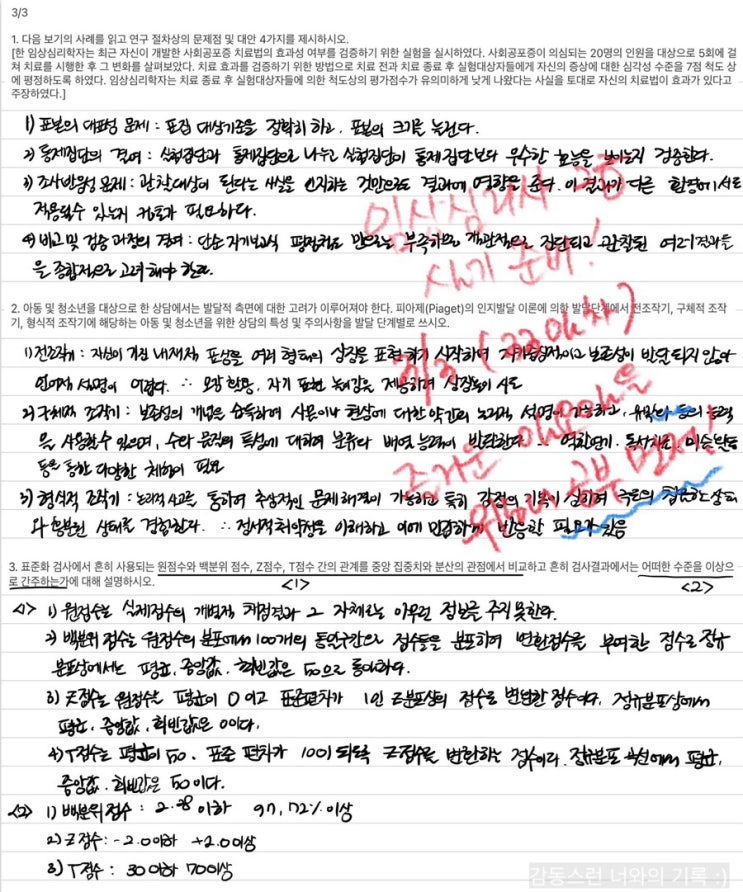 3/3
1. 다음 보기의 사례를 읽고 연구 절차상의 문제점 및 대안 4가지를 제시하시오.
[한 임상심리학자는 최근 자신이 개발한 사회공포증 치료법의 효과성 여부를 검증하기 위한 실험을 실시하였다. 사회공포증이 의심되는 20명의 인원을 대상으로 5회에 걸
쳐 치료를 시행한 후 그 변화를 살펴보았다. 치료 효과를 검증하기 위한 방법으로 치료 전과 치료 종료 후 실험대상자들에게 자신의 증상에 대한 심각성 수준을 7점 척도 상
에 평정하도록 하였다. 임상심리학자는 치료 종료 후 실험대상자들에 의한 척도상의 평가점수가 유의미하게 낮게 나왔다는 사실을 토대로 자신의 치료법이 효과가 있다고
주장하였다.]
1) 표본의 대표성 문제 : 표집 대상기준을 정확히 하고, 표본의 크기를 늘린다.
2) 통제집단의 결여 : 실험집단과 통제집단으로 나누고 실험집단이 통제집단보다 우수한 효능을 보이는지 검증한다.
3) 조사반응성 문제 : 관찰대상이 된다는 사실을 인지하는 것만으로도 결과에 영향을 준다. 이 결과가 다른 환경에서도
적용될수 있는지 검토가 필요하다.
4) 비교 및 검증 과정의 결여 : 단순 자기보고식 평정척도 만으로는 부족하므로 객관적으로 진단되고 관찰된 여러결과들
을 종합적으로 고려해야 한다.
임상심리사 2급
실기 준비!
3/3 (
2. 아동 및 청소년을 대상으로 한 상담에서는 발달적 측면에 대한 고려가 이루어져야 한다. 피아제(Piaget)의 인지발달 이론에 의할 발달단계에서 전조작기, 구체적 조작
기, 형식적 조작기에 해당하는 아동 및 청소년을 위한 상담의 특성 및 주의사항을 발달 단계별로 쓰시오.
1) 전조작기 : 자신이 가진 내재적 표상을 여러 형태의 상징을 표현하기 시작하며 자기중심적이고 보존성이 발달되지 않아
언어적 설명이 어렵다. ∴ 모방 활동, 자기 표현 놀이감을 제공하며 상징놀이 시도
2) 구체적 조작기 : 보존성의 개념을 습득하며 사물이나 현상에 대한 약간의 논리적 설명이 가능하고, 등의 능력
을 사용할수 있으며, 수와 물질의 특성에 대하여 분류와 배열 능력이 발달한다. ∴ 역할연기, 독서치료, 미술활동
등을 통한 다양한 체험이 필요
3) 형식적 조작기 : 논리적 사고를 통하여 추상적인 문제해결이 가능하고 특히 감정의 기복이 심하며 극도의
과 흥분된 상태를 경험한다. ∴ 정서적 취약성을 이해하고 이에 민감하게 반응할 필요가 있음
즐거운 일요일을
위해서 공부 먼저!
3. 표준화 검사에서 흔히 사용되는 원점수와 백분위 점수, Z점수, T점수 간의 관계를 중앙 집중치와 분산의 관점에서 비교하고 흔히 검사결과에서는 어떠한 수준을 이상으
로 간주하는가에 대해 설명하시오.
<1> <2>
<1> 1) 원점수는 실제점수의 개별적 채점결과 그 자체로는 아무런 정보를 주지못한다.
2) 백분위 점수는 원점수의 분포에서 100개의 동일구간으로 점수들을 분포하여 변환점수를 부여한 점수로 정규
분포상에서는 평균, 중앙값, 최빈값은 50으로 동일하다.
3) Z점수는 원점수를 평균이 0이고 표준편차가 1인 Z분포상의 점수로 변환한 점수이다. 정규분포상에서
평균, 중앙값, 최빈값은 0이다.
4) T점수는 평균이 50, 표준 편차가 10이 되도록 Z점수를 변환하는 점수이다. 정규분포 곡선에서 평균,
중앙값, 최빈값은 50이다.
<2> 1) 백분위점수 : 2.28 이하 97.72% 이상
2) Z점수 : -2.0이하 +2.0이상
3) T점수 : 30이하 70이상
감동스런 너와의 기록 :)